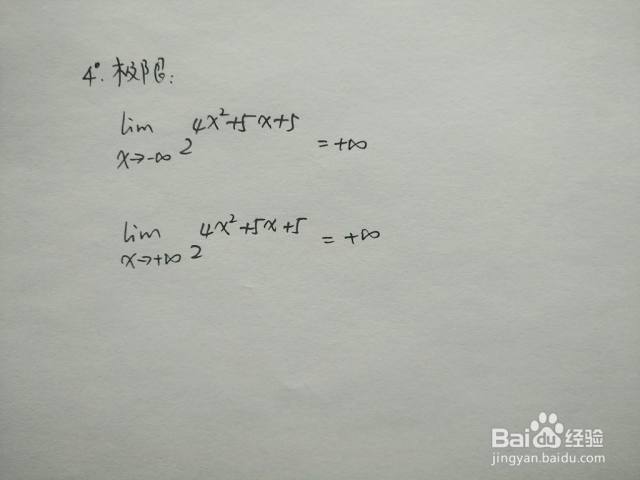 4°. 极限:
lim x→-∞ 2^{4x²+5x+5} = +∞
lim x→+∞ 2^{4x²+5x+5} = +∞
Baidu经验
jingyan.baidu.com